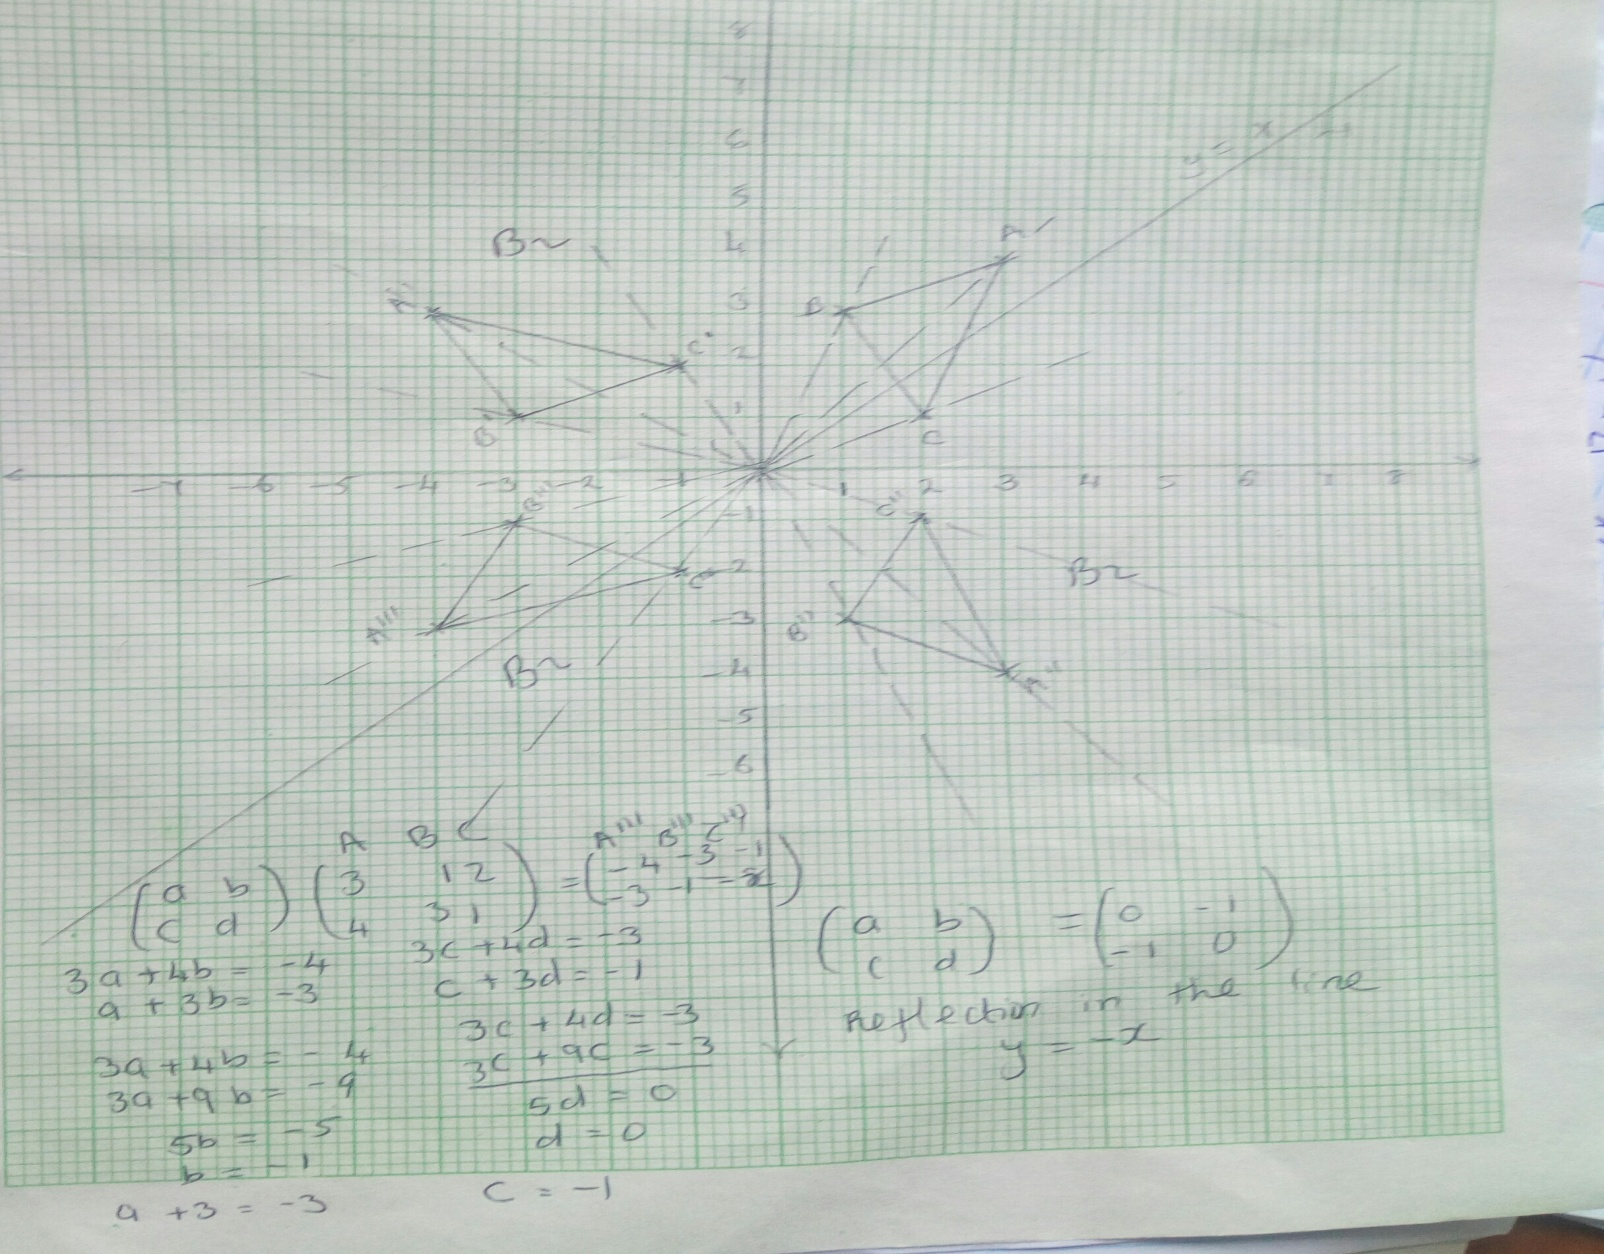 8
7
6
5
4
3
2
1
y = x
B~
A'
B
C
A''
C''
B'
-7 -6 -5 -4 -3 -2 -1 1 2 3 4 5 6 7 8
B'''
A'''
C'''
C''
B''
A''
B~
B~
-1
-2
-3
-4
-5
-6
A B C
A''' B''' C'''
(a b) (3 1 2) = (-4 -3 -1)
(c d) (4 3 1) (-3 -1 -2)
3a + 4b = -4
a + 3b = -3
3a + 4b = -4
3a + 9b = -9
5b = -5
b = -1
a + 3 = -3
3c + 4d = -3
c + 3d = -1
3c + 4d = -3
3c + 9c = -3
5d = 0
d = 0
c = -1
(a b) = (0 -1)
(c d) (-1 0)
Reflection in the line
y = -x